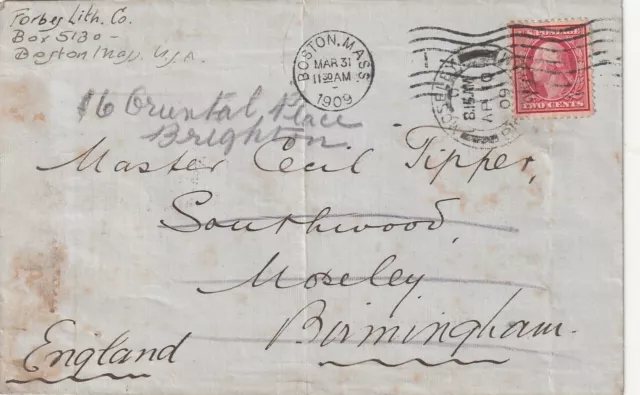 Forbes Lith. Co.
Box 5130 -
Boston Mass. U.S.A.
BOSTON, MASS.
MAR 31
11 30 AM
1909
MOSELEY
8.15 AM
AP 10
09
U.S. POSTAGE
TWO CENTS
16 Oriental Place
Brighton
Master Cecil Tipper,
Southwood,
Moseley
Birmingham.
England